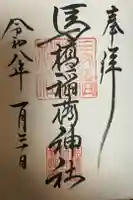 奉拝
馬橋稲荷神社
令和八年一月二十日